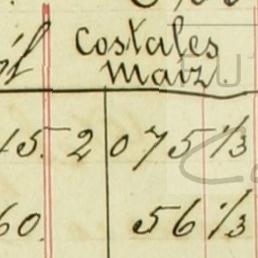 Costales
Maiz.
15. 2 075 1/3
60. 56 1/3